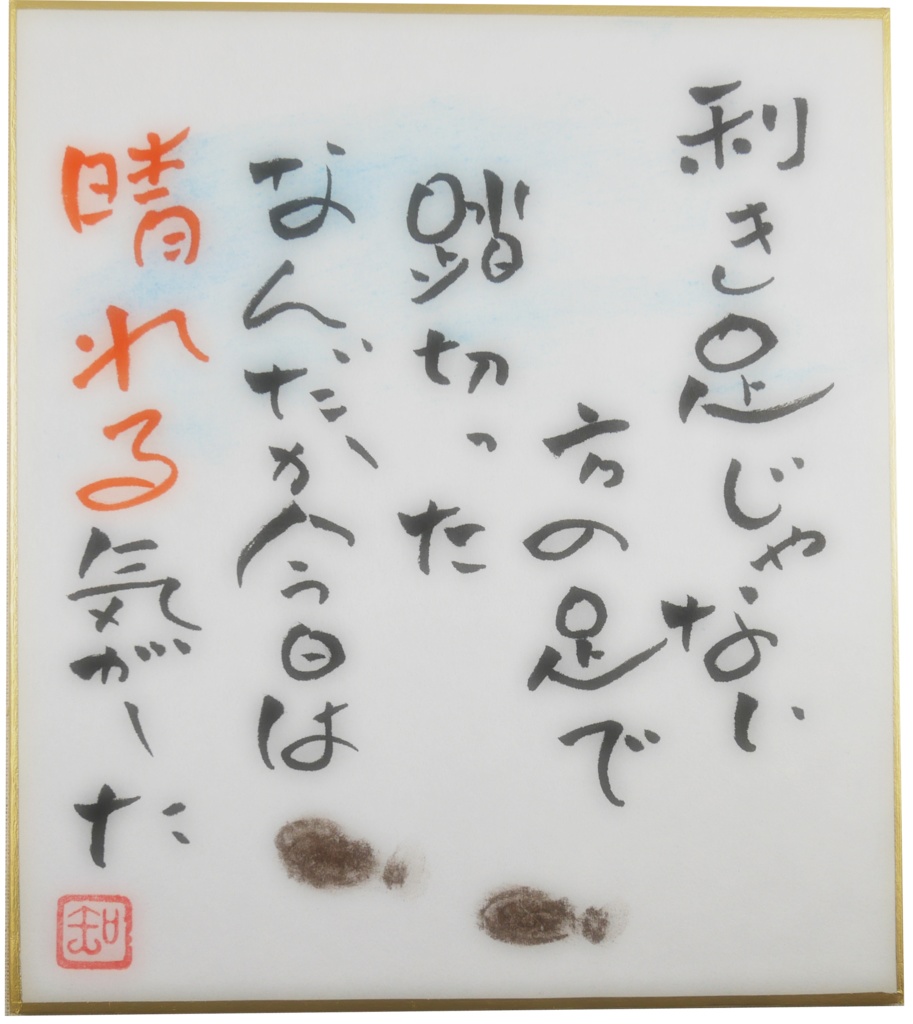 利き足じゃない
方の足で
踏切った
なんだか今日は
晴れる気がした
知